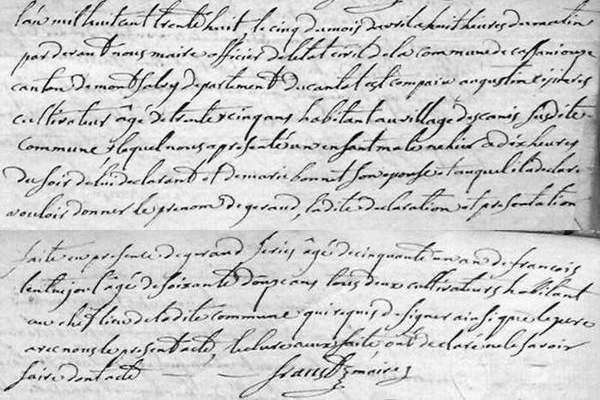 L'an mil huit cent trente huit, le cinq du mois davril a huit heures du matin
par devant nous maire officier de letat civil de la commune de cassaniouze
canton de montsalvy departement du cantal est comparu augustin
cultivateur âgé de trente cinq ans habitant au village descanis susdite
commune, lequel nous a presenté un enfant male né hier a dix heures
du soir de lui declarant et de marie bonnet son epouse et auquel il a declaré
vouloir donner le prenom de geraud, ladite declaration et presentation
faite en presence de geraud âgé de cinquante un an de françois
âgé de soixante douze ans tous deux cultivateurs habitant
au chef lieu de ladite commune qui requis de signer ainsi que le pere
avec nous le present acte, lecture aux faite ont declaré ne le savoir
faire dont acte maire